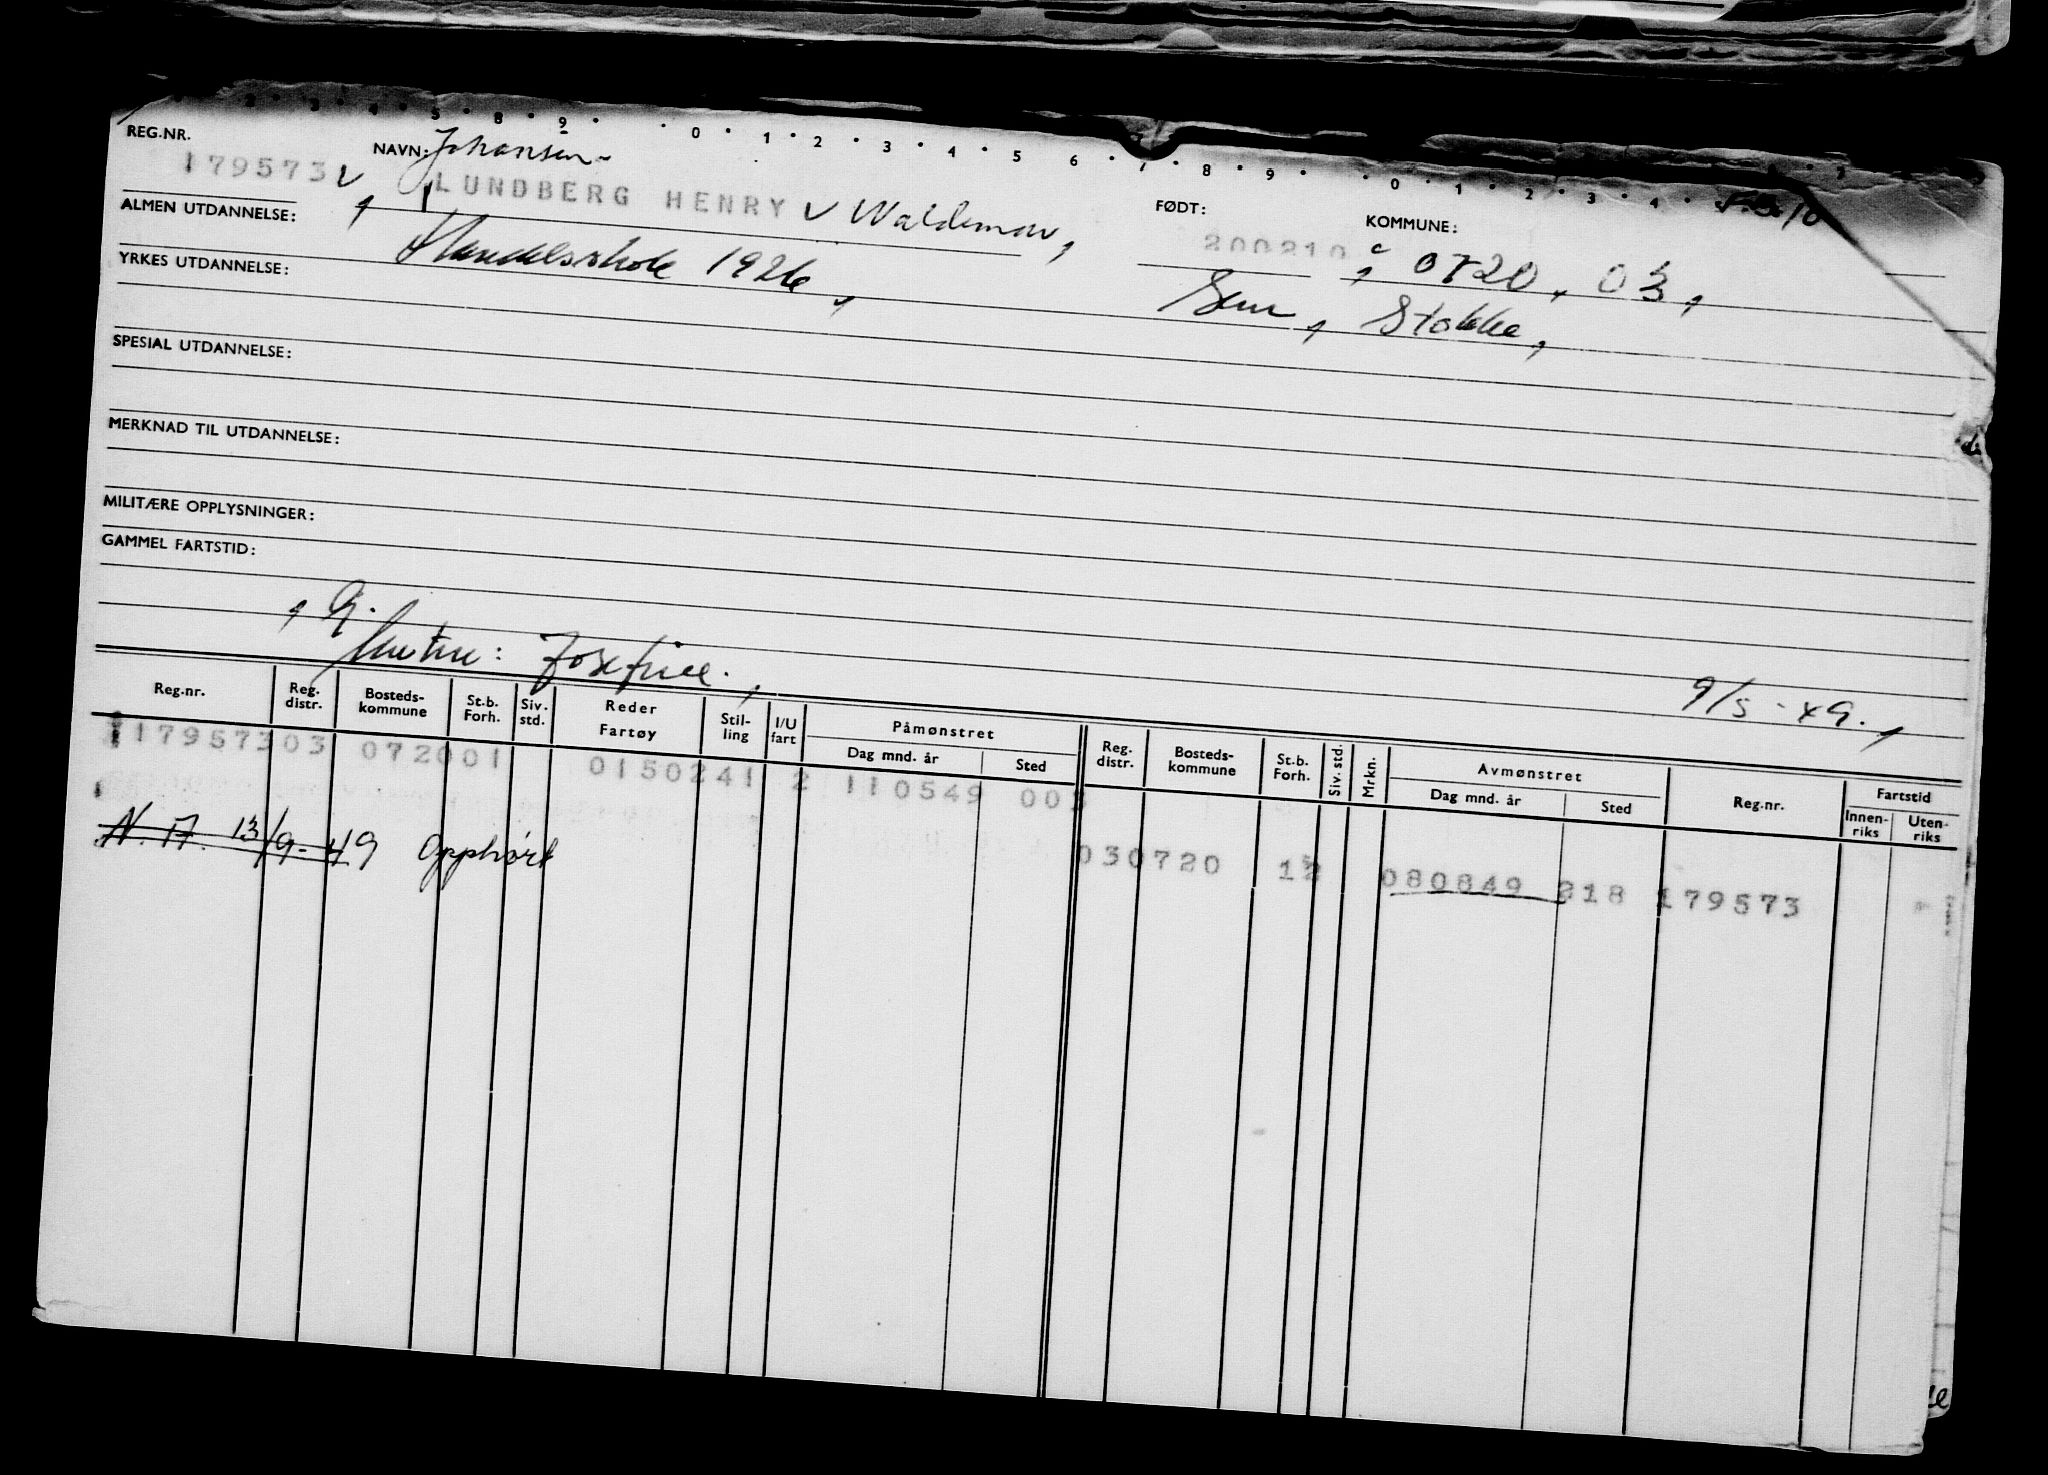 2 · 3 · 4 · 5 · 8 · 9 · · 0 · 1 · 2 · 3 · 4 · 5 · 6 · 7 · 8 · 9 · · 0 · 1 · 2 · 3 · 4 ·
REG.NR. NAVN: Johansen
179573 LUNDBERG HENRY Waldemar, FØDT: KOMMUNE:
200210 0720, 03,
ALMEN UTDANNELSE: Handelsskole 1926, Sem, Stokke,
YRKES UTDANNELSE:
SPESIAL UTDANNELSE:
MERKNAD TIL UTDANNELSE:
MILITÆRE OPPLYSNINGER:
GAMMEL FARTSTID:
, G.
Hustru: Josefine., 9/5 - 49.,
Reg.nr. Reg. distr. Bosteds-kommune St.b. Forh. Siv. std. Reder Fartøy Stil-ling I/U fart Påmønstret Dag mnd. år Sted Reg. distr. Bosteds-kommune St.b. Forh. Siv. std. Mrkn. Avmønstret Dag mnd. år Sted Reg.nr. Fartstid Innen-riks Uten-riks
17957303 072001 0150241 2 110549 003
N.A. 13/9-49 Opphørt 030720 12 080849 218 179573